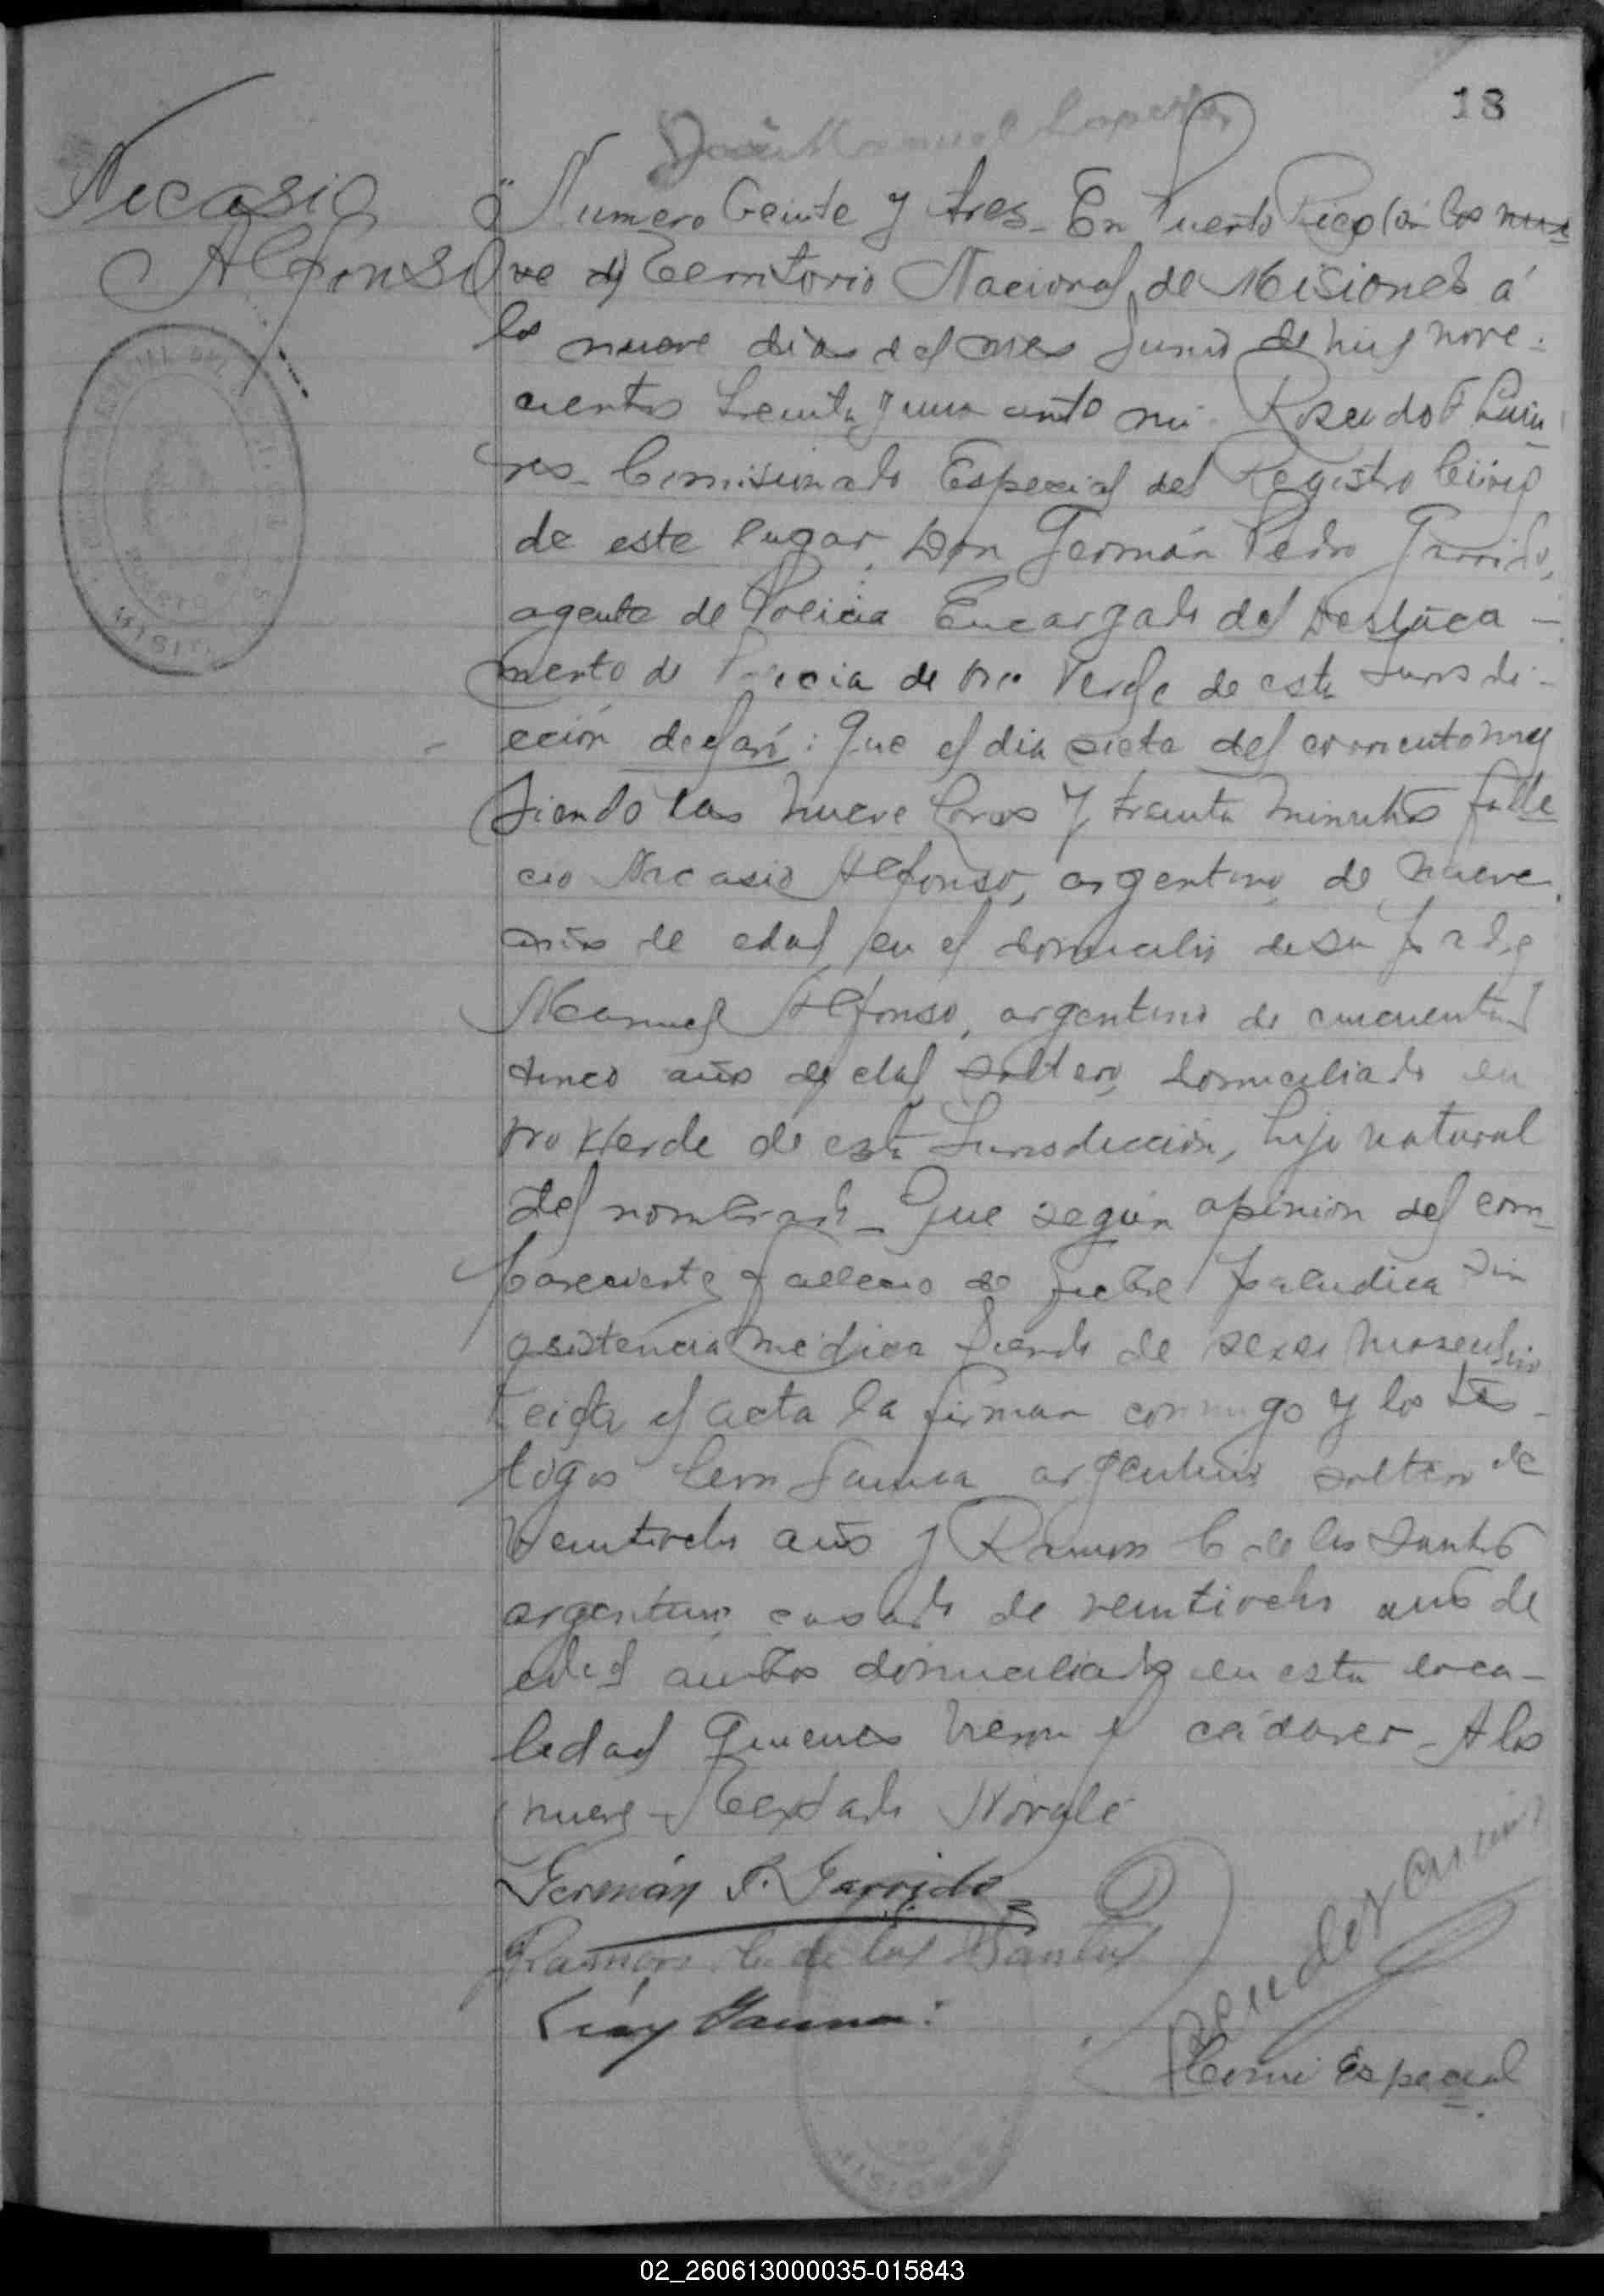 18
José Manuel
Nicasio
Alfonso
Numero Veinte y tres_ En Puerto Rico los nue
ve Territorio Nacional de Misiones á
los nueve dias del mes Junio de mil nove-
cientos treinta y uno ante mi Rosendo
res_ Comisionado Especial del Registro Civil
de este lugar, Don Germán Pedro Garrido,
agente de Policia Encargado del Destaca-
mento de Policia de Oro Verde de esta Jurisdi-
cción declaró: Que el dia siete del corriente mes
siendo las nueve horas y treinta minutos falle
cio Nicasio Alfonso, argentino, de nueve
años de edad en el domicilio de su padre
Manuel Alfonso, argentino de cincuenta y
cinco años de edad soltero, domiciliado en
oro Verde de esta Jurisdicción, hijo natural
del nombrado_ Que según opinion del com_
pareciente fallecio de fiebre paludica sin
asistencia medica siendo de sexo masculino
Leida el acta la firman conmigo y los tes-
tigos Leon Gauna argentino soltero de
veintiocho años y Ramon C de los Santos
argentino casado de veintiocho años de
edad ambos domiciliados en esta loca-
lidad quienes vieron el cadaver_ A los
nueve_ Textado No vale
Germán P. Garrido
Ramon C. de los Santos
León Gauna
Comi Especial
02_260613000035-015843